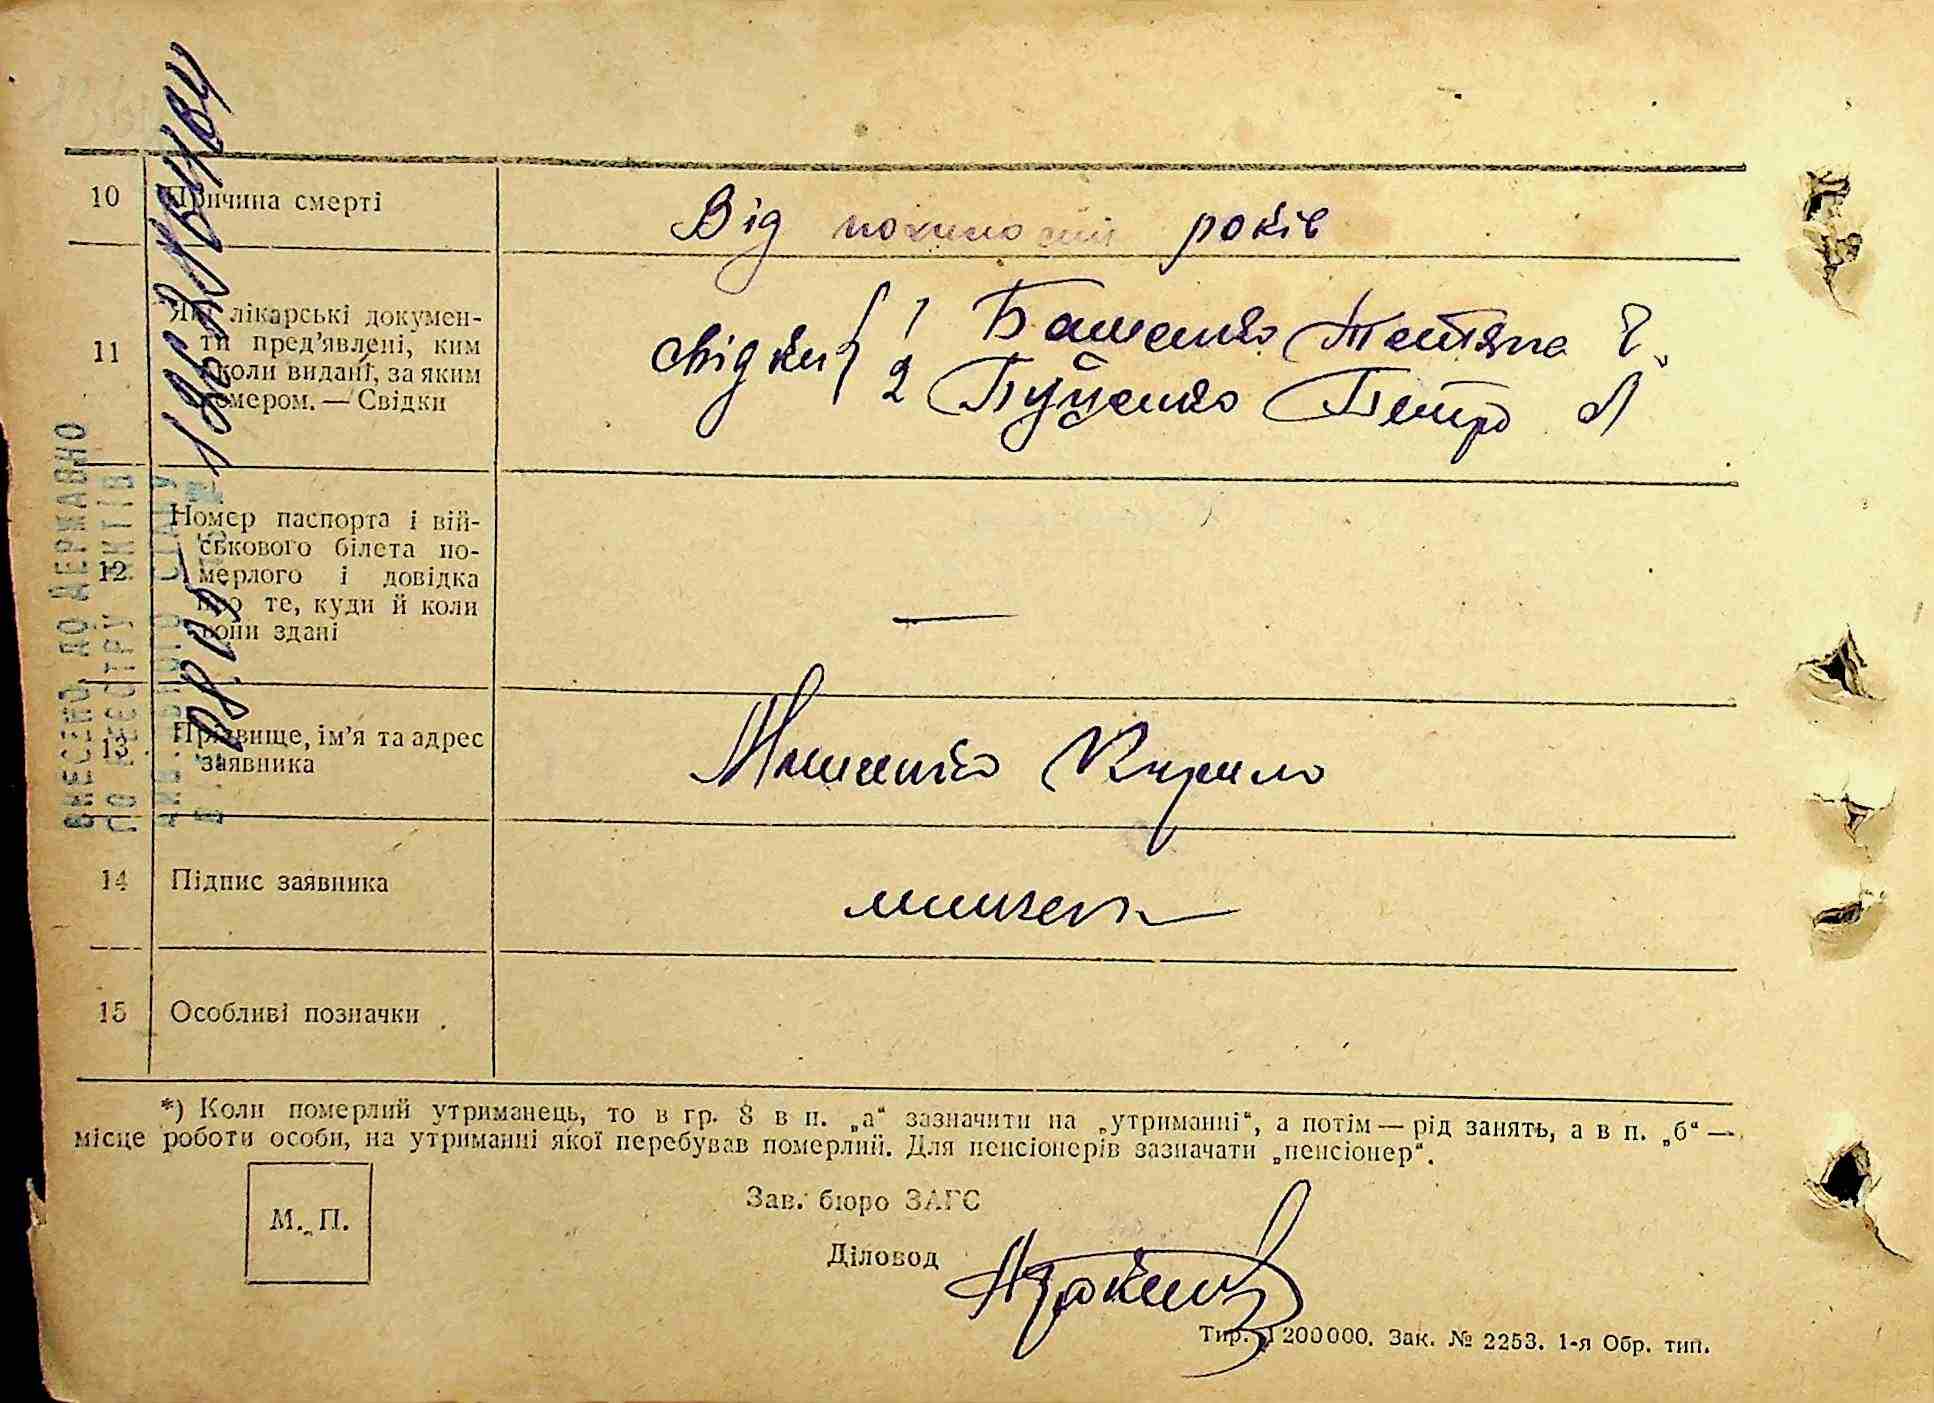 10 Причина смерті
Від похилости років
11 Які лікарські докумен-
ти пред’явлені, ким
і коли видані, за яким
номером. — Свідки
свідки { 1 Баценко Тетяна
2 Буценко Петро А
12 Номер паспорта і вій-
ськового білета по-
мерлого і довідка
про те, куди й коли
вони здані
—
13 Прізвище, ім’я та адрес
заявника
Кирило
14 Підпис заявника
15 Особливі позначки
*) Коли померлий утриманець, то в гр. 8 в п. „а“ зазначити на „утриманні“, а потім — рід занять, а в п. „б“ —
місце роботи особи, на утриманні якої перебував померлий. Для пенсіонерів зазначати „пенсіонер“.
М. П.
Зав. бюро ЗАГС
Діловод
Тир. 1200000. Зак. № 2253. 1-я Обр. тип.
ВНЕСЕНО ДО ДЕРЖАВНО
ГО РЕЄСТРУ АКТІВ